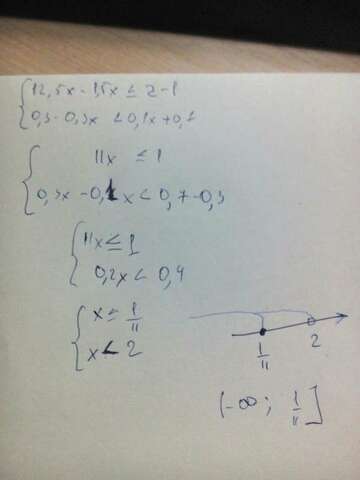 { 12,5x - 1,5x ≤ 2 - 1
0,3 - 0,3x < 0,1x + 0,7
{ 11x ≤ 1
0,3x - 0,1x < 0,7 - 0,3
{ 11x ≤ 1
0,2x < 0,4
{ x ≤ 1/11
x < 2
1/11 2
(-∞; 1/11]